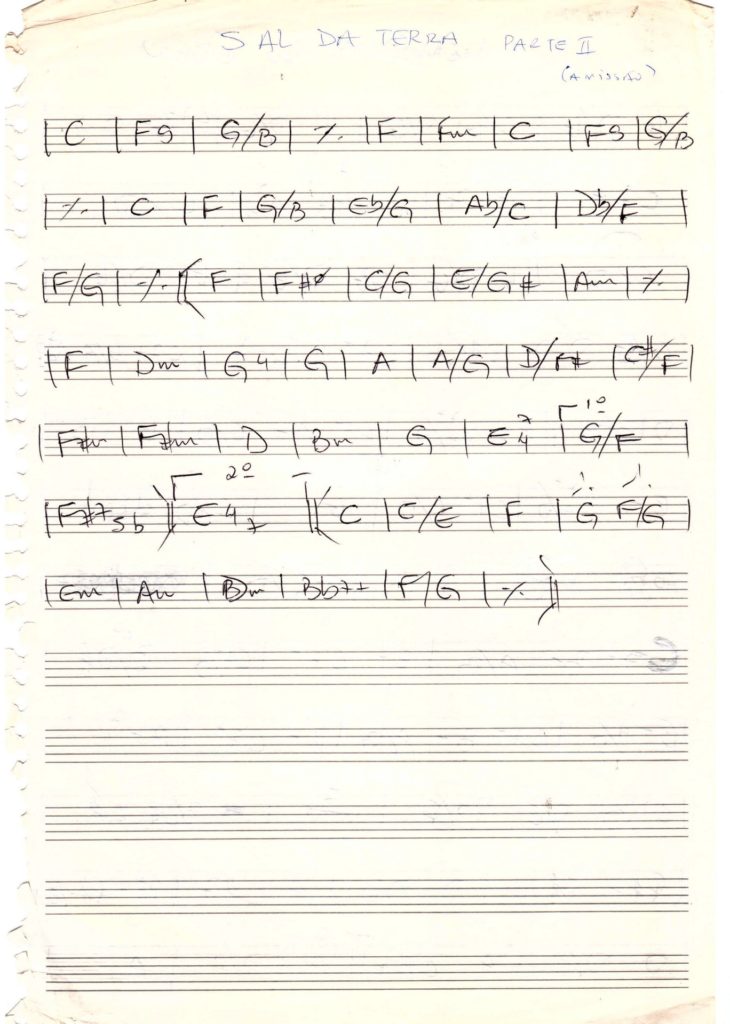 SAL DA TERRA PARTE II
(A MISSÃO)
| C | F9 | G/B | ٪ | F | Fm | C | F9 | G/B
| ٪ | C | F | G/B | Eb/G | Ab/C | Db/F |
| F/G | ٪ || F | F#ø | C/G | E/G# | Am | ٪ |
| F | Dm | G4 | G | A | A/G | D/F# | C#/F |
| F#m | F#m | D | Bm | G | E 7 4 | 1º G/F |
| F#7 5b || 2º E 4 7 || C | C/E | F | G F/G |
| Em | Am | Dm | Bb7+ | F/G | ٪ ||